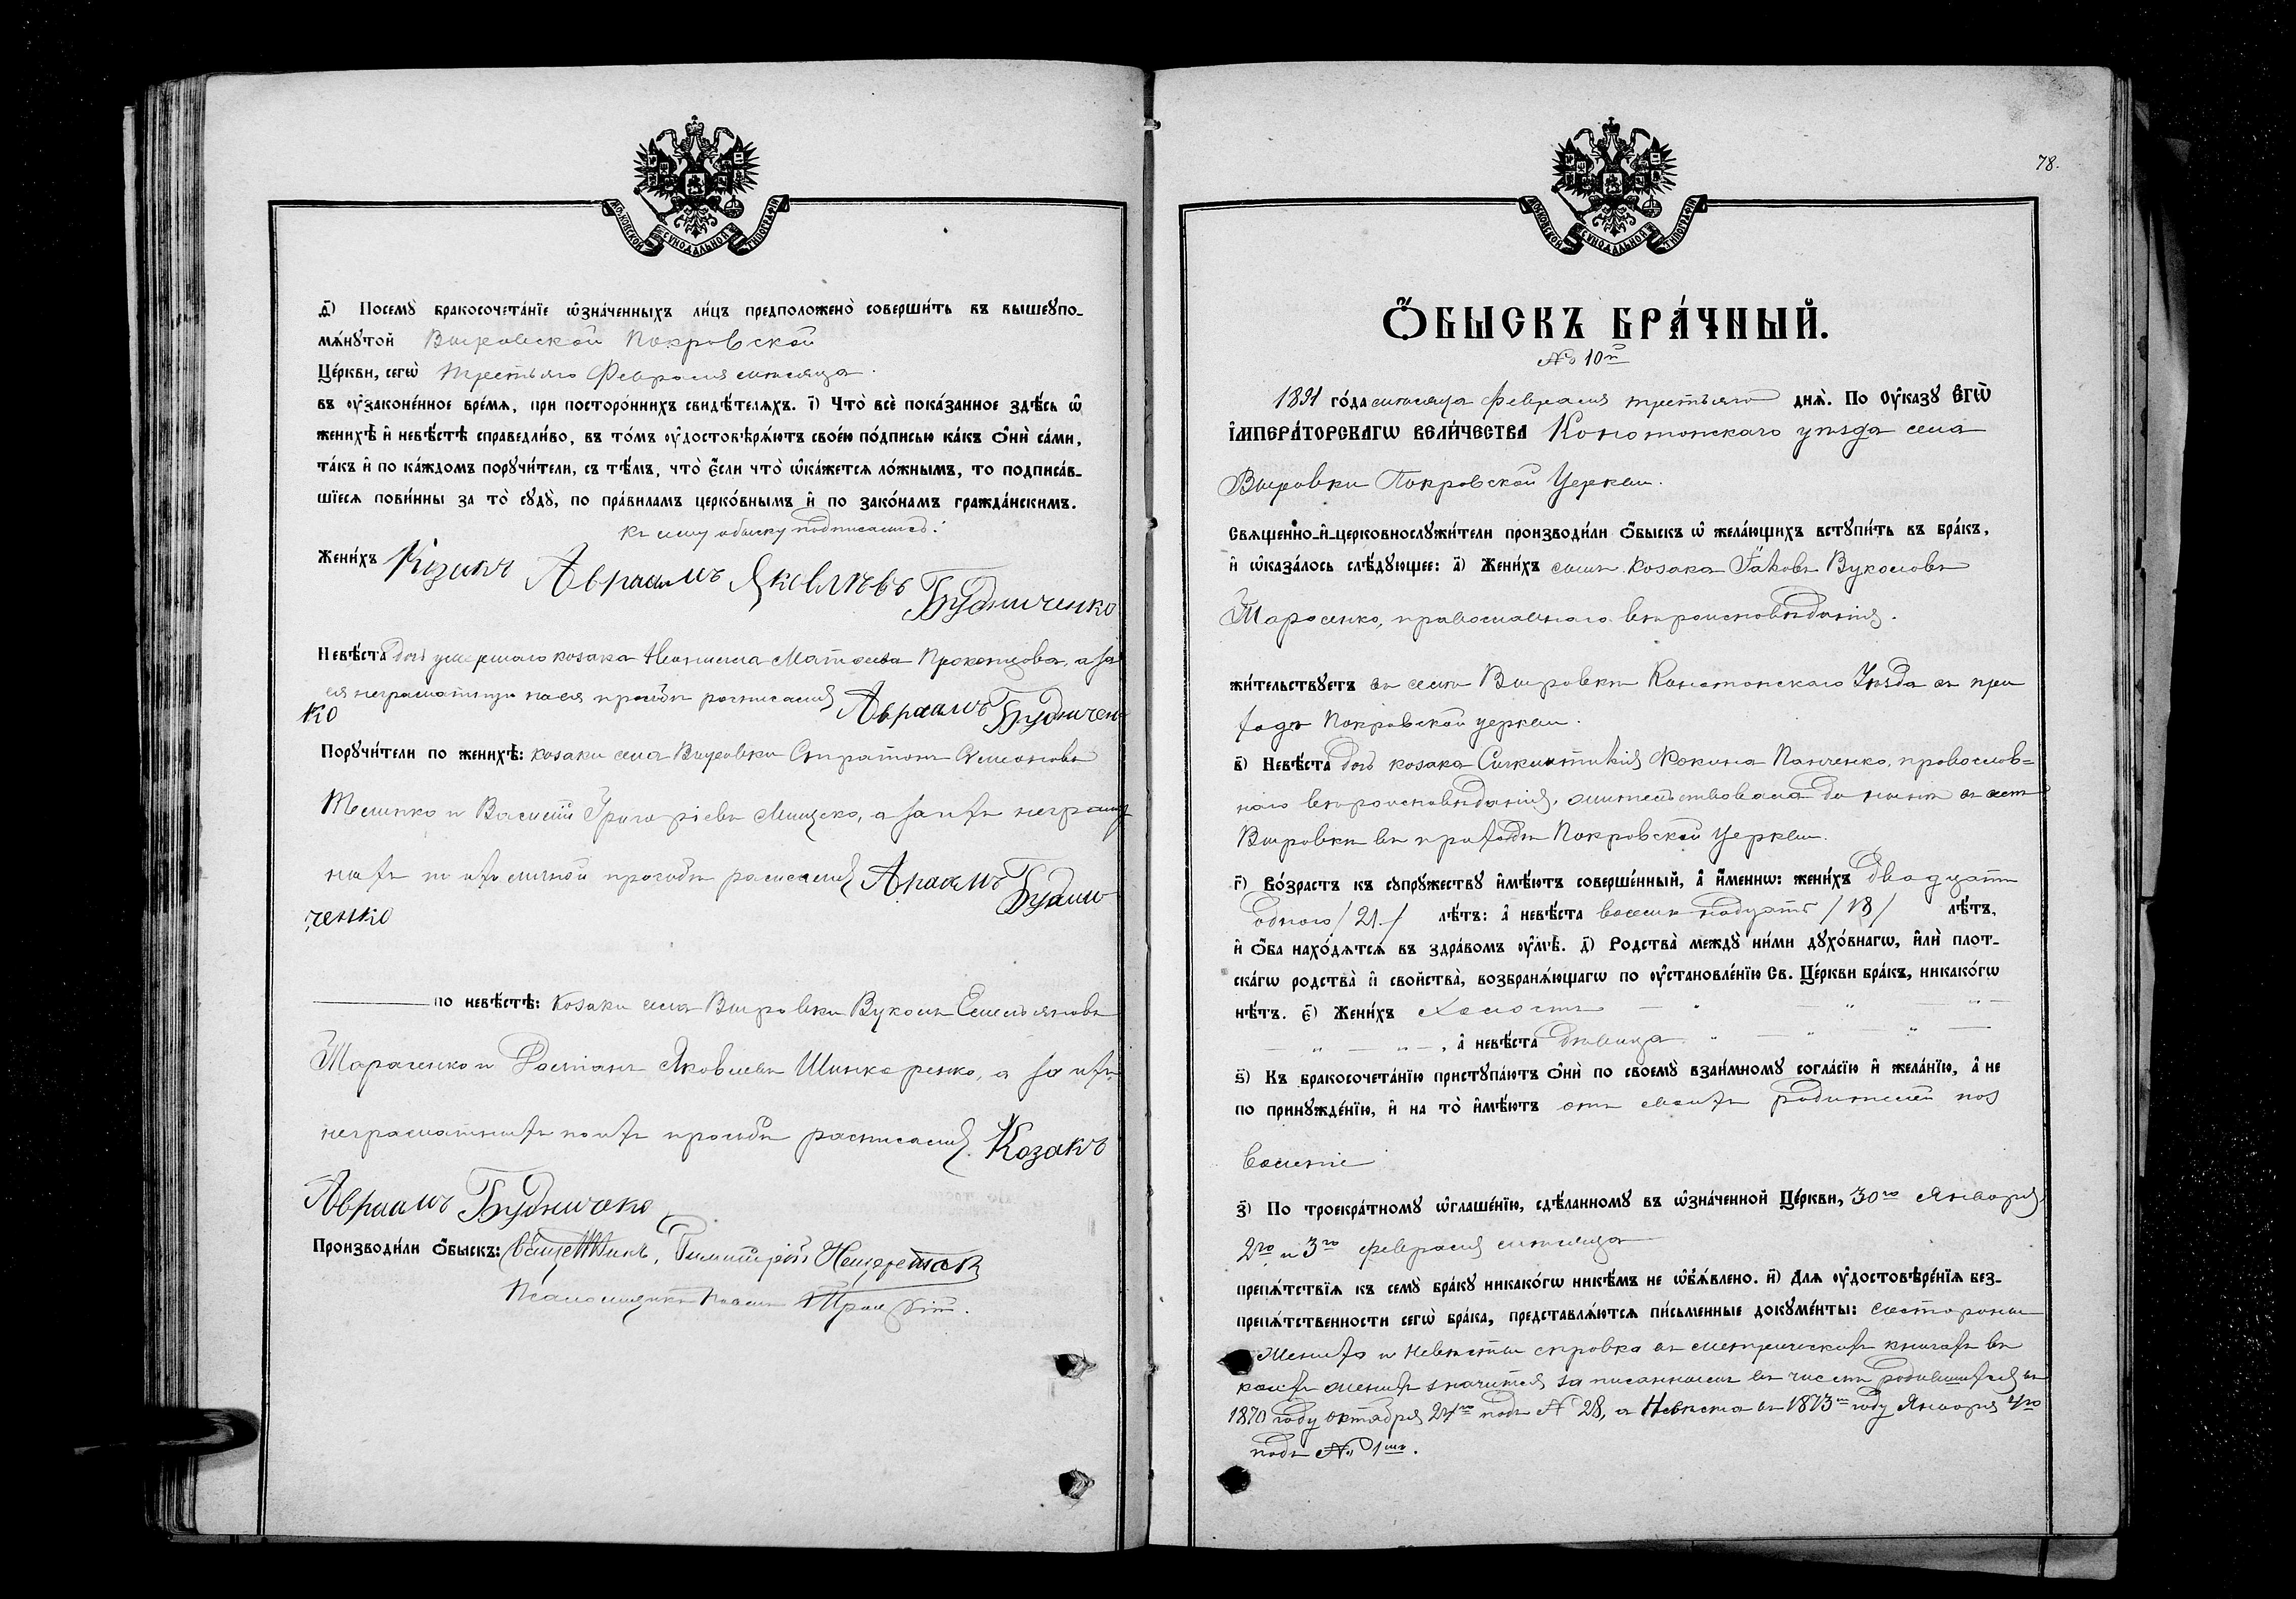 МОСКОВСКОЙ СѴНОДАЛЬНОЙ ТИПОГРАФІИ
д҃) Посемꙋ̀ бракосочета́нїе ѡ҆зна́ченныхъ ли́цъ предположено̀ соверши́ть въ вышеꙋпо-
мѧ́нꙋтой Выровской Покровской
Це́ркви, сегѡ̀ третьяго Февраля мѣсяца.
въ ᲂу҆законе́нное вре́мѧ, при посторо́ннихъ свидѣ́телѧхъ. і҃) Что̀ всѐ пока́занное здѣ́сь ѡ҆
женихѣ̀ и҆ невѣ́стѣ справедли́во, въ то́мъ ᲂу҆достовѣрѧ́ютъ свое́ю по́дписью ка́къ ѻ҆нѝ са́ми,
та́къ и҆ по ка́ждомъ порꙋчи́тели, съ тѣ́мъ, что̀ є҆́сли что̀ ѡ҆ка́жетсѧ ло́жнымъ, то подписа́в-
шїесѧ пови́нны за то̀ сꙋдꙋ̀, по пра́виламъ церко́внымъ и҆ по зако́намъ гражда́нскимъ.
Къ сему обыску подписались:
Жени́хъ Козакъ Авраамъ Яковлѣвъ
Будниченко
Невѣ́ста дочь умершаго козака Прокопцова, а за
ея неграматную на ея прозьбы росписался Авраамъ Будничен
ко
Порꙋчи́тели по женихѣ̀: козаки села Выровки
и Василій Григоріевъ а за ихъ неграмат
ныхъ по ихъ личной прозьбы росписался Авраамъ
Будни
ченко
по невѣ́стѣ: козаки села Выровки Вуколъ Емельяновъ
Тарасенко и Яковлевъ Шинкаренко, а за ихъ
неграматныхъ по ихъ прозьбы росписался. Козакъ
Авраамъ Будниченко
Производи́ли ѻ҆́быскъ: Священникъ,
Псаломщикъ
78.
МОСКОВСКОЙ СѴНОДАЛЬНОЙ ТИПОГРАФІИ
Ѻ҆́БЫСКЪ БРА́ЧНЫЙ.
№ 10й
1891 го́да мѣсяца Февраля третьяго днѧ̀. По Оу҆́казꙋ Є҆ГѠ̀
І҆МПЕРА́ТОРСКАГѠ ВЕЛИ́ЧЕСТВА Конотопскаго уѣзда села
Выровки Покровской Церкви.
Свѧще́нно-и҆-церковнослꙋжи́тели производи́ли ѻ҆́быскъ ѡ҆ жела́ющихъ встꙋпи́ть въ бра́къ,
и҆ ѡ҆каза́лось слѣ́дꙋющее: а҃) Жени́хъ сынъ козака Іаковъ Вуколовъ
Тарасенко, православнаго вѣроисповѣданія.
жи́тельствꙋетъ въ селѣ Выровкѣ Конотопскаго Уѣзда въ при
ходѣ Покровской церкви.
в҃) Невѣ́ста дочь козака Фокина Панченко, православ=
наго вѣроисповѣданія, жительствовала до нынѣ въ селѣ
Выровкѣ въ приходѣ Покровской Церкви.
г҃) Во́зрастъ къ сꙋпрꙋ́жествꙋ и҆мѣ́ютъ соверше́нный, а҆ и҆́меннѡ: жени́хъ двадцати
одного /21/ лѣ́тъ: а҆ невѣ́ста восемьнадцать /18/ лѣ́тъ,
и҆ ѻ҆́ба нахо́дѧтсѧ въ здра́вомъ ᲂу҆мѣ̀. д҃) Родства̀ междꙋ̀ ни́ми дꙋхо́внагѡ, и҆лѝ плот-
ска́гѡ родства̀ и҆ свойства̀, возбранѧ́ющагѡ по ᲂу҆становле́нїю Св. Це́ркви бра́къ, никако́гѡ
нѣ́тъ. є҃) Жени́хъ Холостъ — „ — „ — „ —
— „ — „ —, а҆ невѣ́ста дѣвица. „ — „ — „ —
ѕ҃) Къ бракосочета́нїю пристꙋпа́ютъ ѻ҆нѝ по своемꙋ̀ взаи́мномꙋ согла́сїю и҆ жела́нїю, а҆ не
по принꙋжде́нїю, и҆ на то̀ и҆мѣ́ютъ отъ своихъ родителей поз
воленіе
з҃) По троекра́тномꙋ ѡ҆глаше́нїю, сдѣ́ланномꙋ въ ѡ҆зна́ченной Це́ркви, 30го Января
2го и 3го февраля мѣсяца
препѧ́тствїѧ къ семꙋ̀ бра́кꙋ никако́гѡ никѣ́мъ не ѡ҆б̾ѧ́влено. и҃) Длѧ ᲂу҆достовѣре́нїѧ без-
препѧ́тственности сегѡ̀ бра́ка, представлѧ́ютсѧ пи́сьменные докꙋме́нты: състороны
Жениха и Невѣсты справка въ метрическихъ книгахъ въ
коихъ женихъ значится записаннымъ въ числѣ родившихся въ
1870 году октября 24го подъ № 28, а Невѣста въ 1873м году Января 4го
подъ № 1мъ.